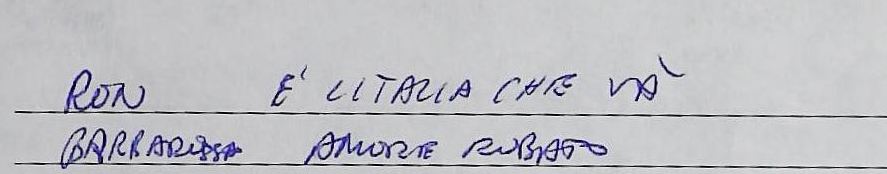 RON E' L'ITALIA CHE VÀ
BARBAROSSA AMORE RUBATO